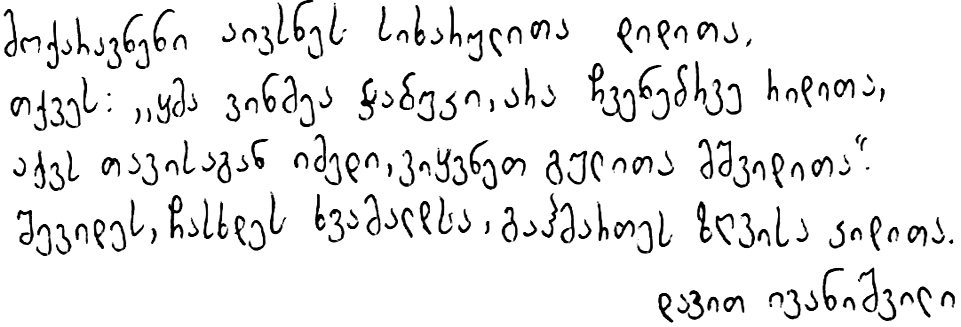 მოქარავნენი აივსნეს სიხარულითა დიდითა,
თქვეს: „ყმა ვინმეა ჭაბუკი, არა ჩვენებრვე რიდითა,
აქვს თავისაგან იმედი, ვიყვნეთ გულითა მშვიდითა“.
შევიდეს, ჩასხდეს ხვამალდსა, გაჰმართეს ზღვისა კიდითა.
დავით ივანიშვილი